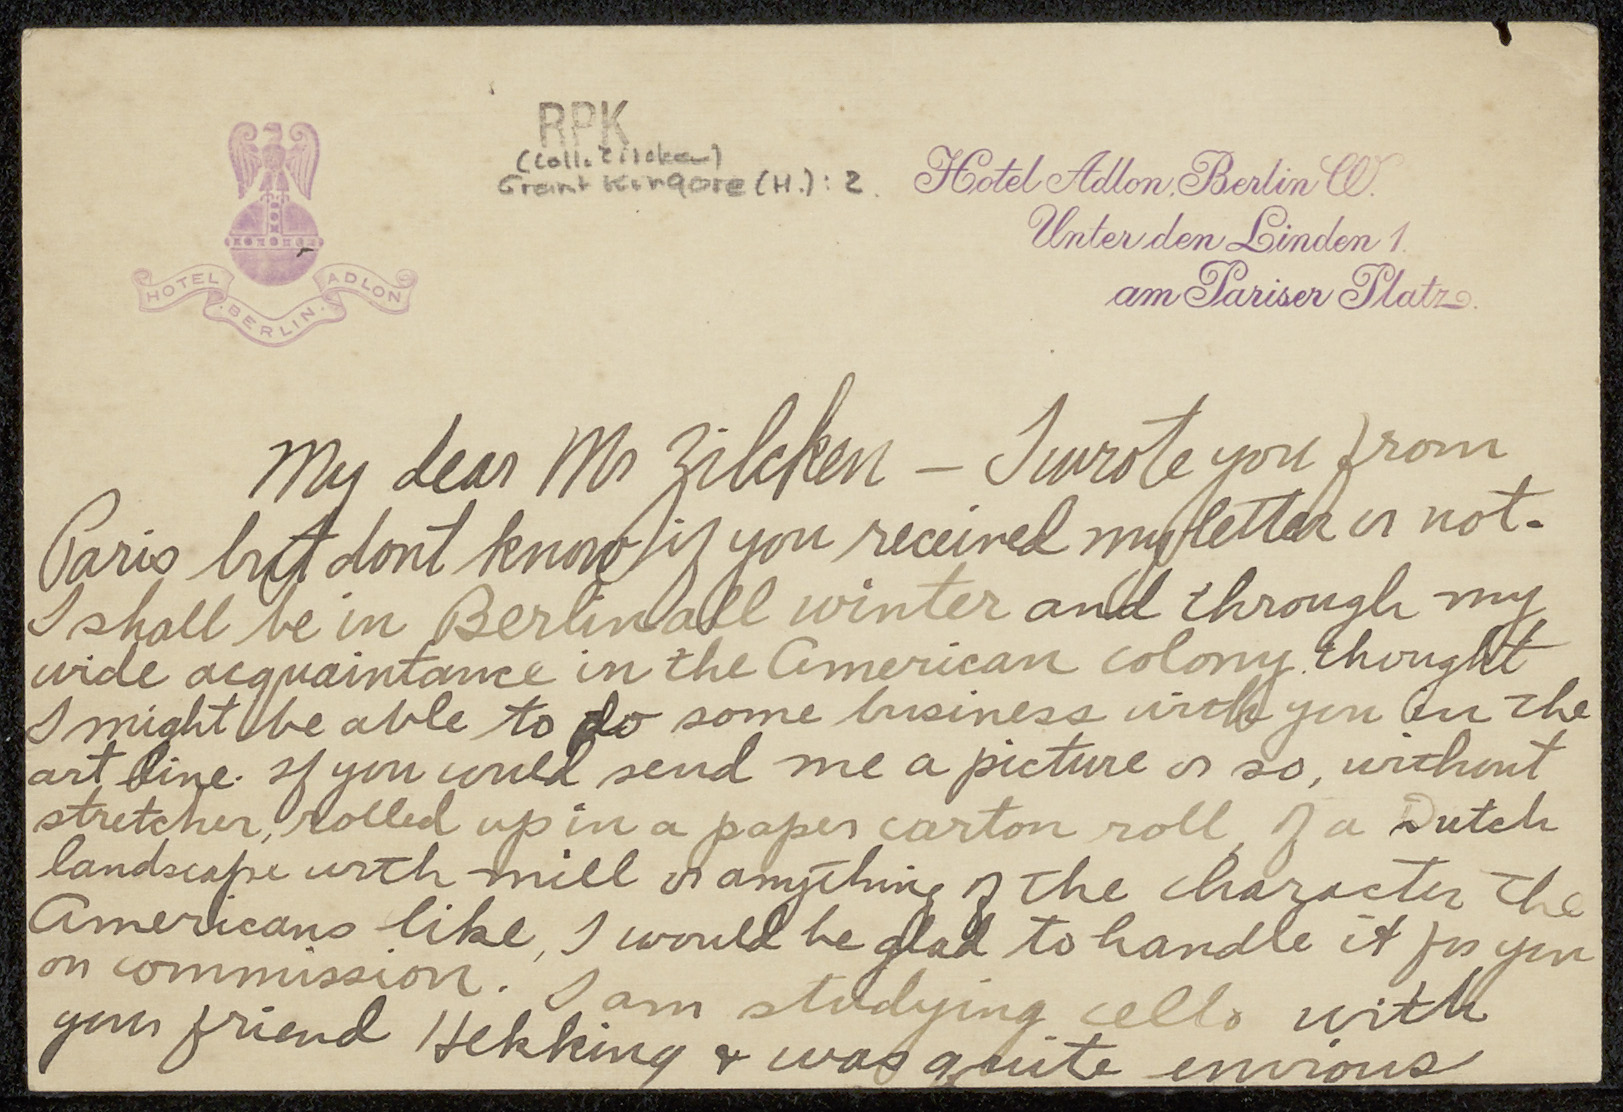 HOTEL ADLON
BERLIN
RPK
(Coll. Zilcken)
Grant Kingore (H.): 2.
Hotel Adlon, Berlin W.
Unter den Linden 1.
am Pariser Platz.
My dear Mr Zilcken – I wrote you from
Paris but dont know if you received my letter or not.
I shall be in Berlin all winter and through my
wide acquaintance in the American colony thought
I might be able to do some business with you in the
art line. If you would send me a picture or so, without
stretcher, rolled up in a paper carton roll, of a Dutch
landscape with mill or anything of the character the
Americans like, I would be glad to handle it for you
on commission. I am studying cello with
your friend Hekking & was quite envious